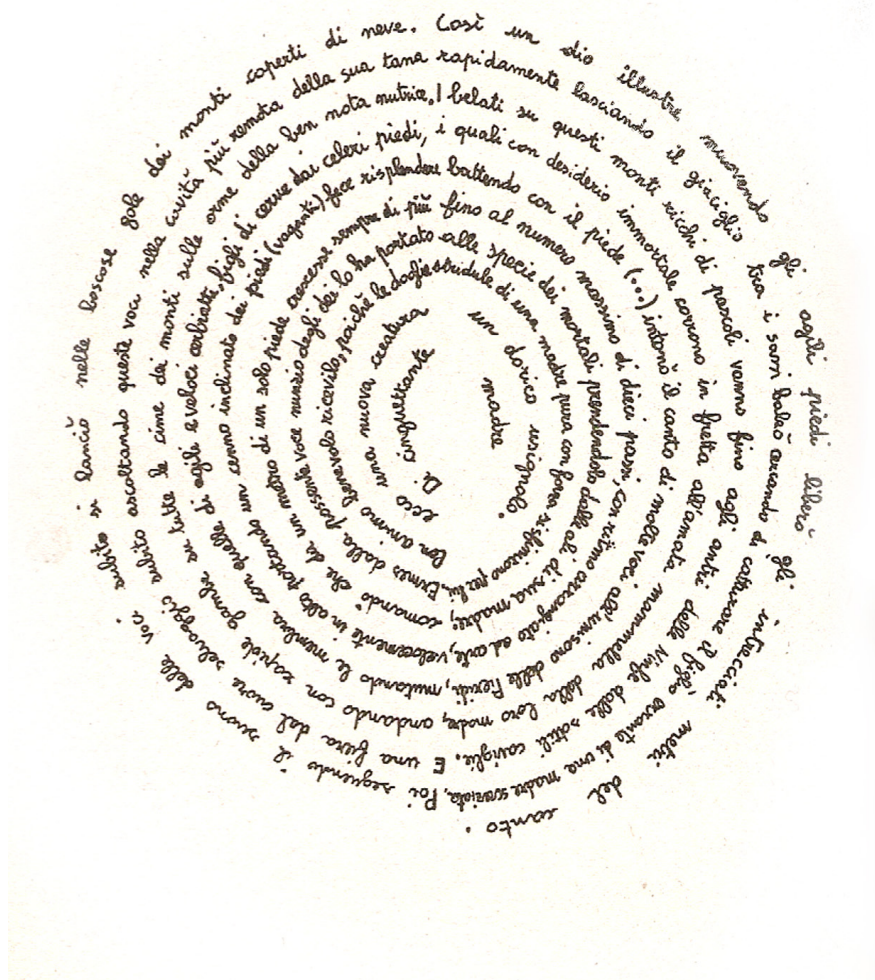 Di cinguettante madre
ecco una nuova creatura un dorico usignolo.
Con animo benevolo ricevilo, poichè le doglie stridule di una madre pura con forza si sfinirono per lui.
Ermes dalla possente voce nunzio degli dei lo ha portato alle specie dei mortali prendendolo dalle ali di sua madre,
comandò che da un metro di un solo piede crescesse sempre di più fino al numero massimo di dieci passi, con ritmo arrangiato ad arte,
velocemente in alto portando un cenno inclinato dei piedi (vaganti) fece risplendere battendo con il piede (...) intonò il canto di molte voci all'unisono delle Pieridi,
mutando le membra con quelle di agili e veloci cerbiatte, figli di cerve dai celeri piedi, i quali con desiderio immortale corrono in fretta all'amata mammella della loro madre,
andando con rapide gambe su tutte le cime dei monti sulle orme della ben nota nutrice. I belati su questi monti ricchi di pascoli vanno fino agli antri delle Ninfe dalle sottili caviglie.
E una fiera dal cuore selvaggio subito ascoltando queste voci nella cavità più remota della sua tana rapidamente lasciando il giaciglio tra i sassi balzò cercando di catturare il figlio errante di una madre
Poi seguendo il suono delle voci subito si lanciò nelle boscose gole dei monti coperti di neve. Così un dio illustre muovendo gli agili piedi liberò gli intrecciati metri del canto.